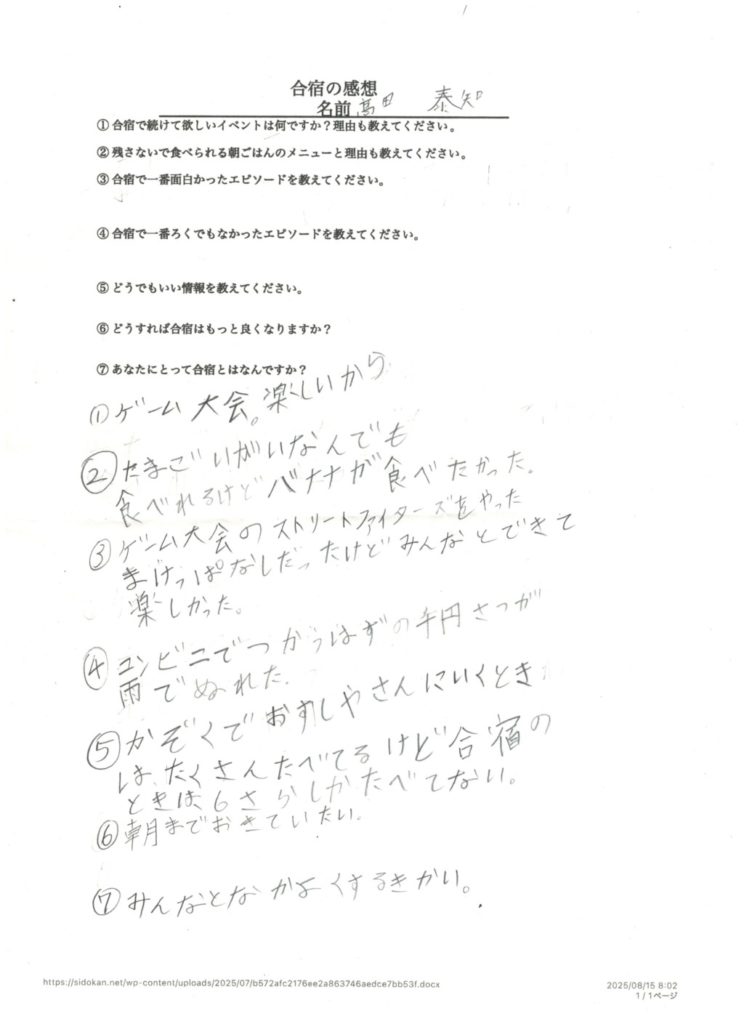 合宿の感想
名前 高田 泰知
① 合宿で続けて欲しいイベントは何ですか？理由も教えてください。
② 残さないで食べられる朝ごはんのメニューと理由も教えてください。
③ 合宿で一番面白かったエピソードを教えてください。
④ 合宿で一番ろくでもなかったエピソードを教えてください。
⑤ どうでもいい情報を教えてください。
⑥ どうすれば合宿はもっと良くなりますか？
⑦ あなたにとって合宿とはなんですか？
① ゲーム大会。楽しいから
② たまごいがいなんでも
食べれるけどバナナが食べたかった。
③ ゲーム大会のストリートファイターズをやった
まけっぱなしだったけどみんなとできて
楽しかった。
④ コンビニでつかうはずの千円さつが
雨でぬれた.
⑤ かぞくでおすしやさんにいくとき
は、たくさんたべてるけど合宿の
ときは6さらしかたべてない。
⑥ 朝までおきていたい.
⑦ みんなとなかよくするきかい。
https://sidokan.net/wp-content/uploads/2025/07/b572afc2176ee2a863746aedce7bb53f.docx
2025/08/15 8:02
1 / 1ページ